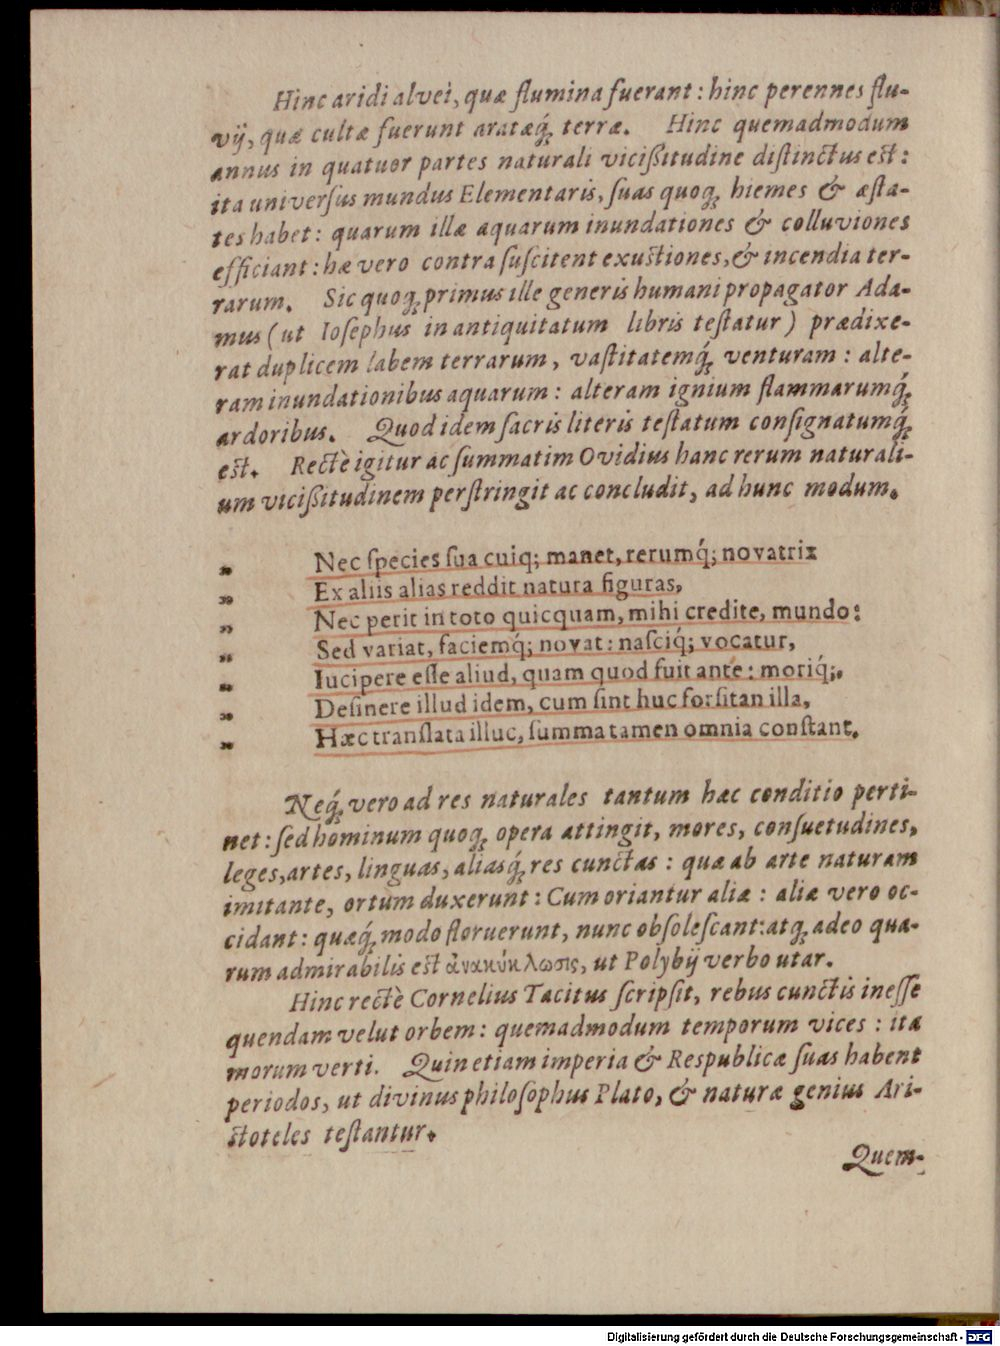 Hinc aridi alvei, quæ flumina fuerant : hinc perennes flu-
vij, quæ cultæ fuerunt aratæq́; terræ. Hinc quemadmodum
annus in quatuor partes naturali vicißitudine distinctus est :
ita universus mundus Elementaris, suas quoq; hiemes & æsta-
tes habet : quarum illæ aquarum inundationes & colluviones
efficiant : hæ vero contra suscitent exustiones, & incendia ter-
rarum. Sic quoq; primus ille generis humani propagator Ada-
mus (ut Iosephus in antiquitatum libris testatur) prædixe-
rat duplicem labem terrarum, vastitatemq́; venturam : alte-
ram inundationibus aquarum : alteram ignium flammarumq́;
ardoribus. Quod idem sacris literis testatum consignatumq́;
est. Rectè igitur ac summatim Ovidius hanc rerum naturali-
um vicißitudinem perstringit ac concludit, ad hunc modum.
„ Nec species sua cuiq; manet, rerumq́; novatrix
„ Ex aliis alias reddit natura figuras,
„ Nec perit in toto quicquam, mihi credite, mundo :
„ Sed variat, faciemq́; novat : nasciq́; vocatur,
„ Iucipere esse aliud, quam quod fuit ante : moriq́;,
„ Desinere illud idem, cum sint huc forsitan illa,
„ Hæc translata illuc, summa tamen omnia constant.
Neq́; vero ad res naturales tantum hæc conditio perti-
net : sed hominum quoq; opera attingit, mores, consuetudines,
leges, artes, linguas, aliasq́; res cunctas : quæ ab arte naturam
imitante, ortum duxerunt : Cum oriantur aliæ : aliæ vero oc-
cidant : quæq́; modo floruerunt, nunc obsolescant : atq; adeo qua-
rum admirabilis est ἀνακύκλωσις, ut Polybij verbo utar.
Hinc rectè Cornelius Tacitus scripsit, rebus cunctis inesse
quendam velut orbem : quemadmodum temporum vices : ita
morum verti. Quin etiam imperia & Respublicæ suas habent
periodos, ut divinus philosophus Plato, & naturæ genius Ari-
stoteles testantur.
Quem-
Digitalisierung gefördert durch die Deutsche Forschungsgemeinschaft - DFG